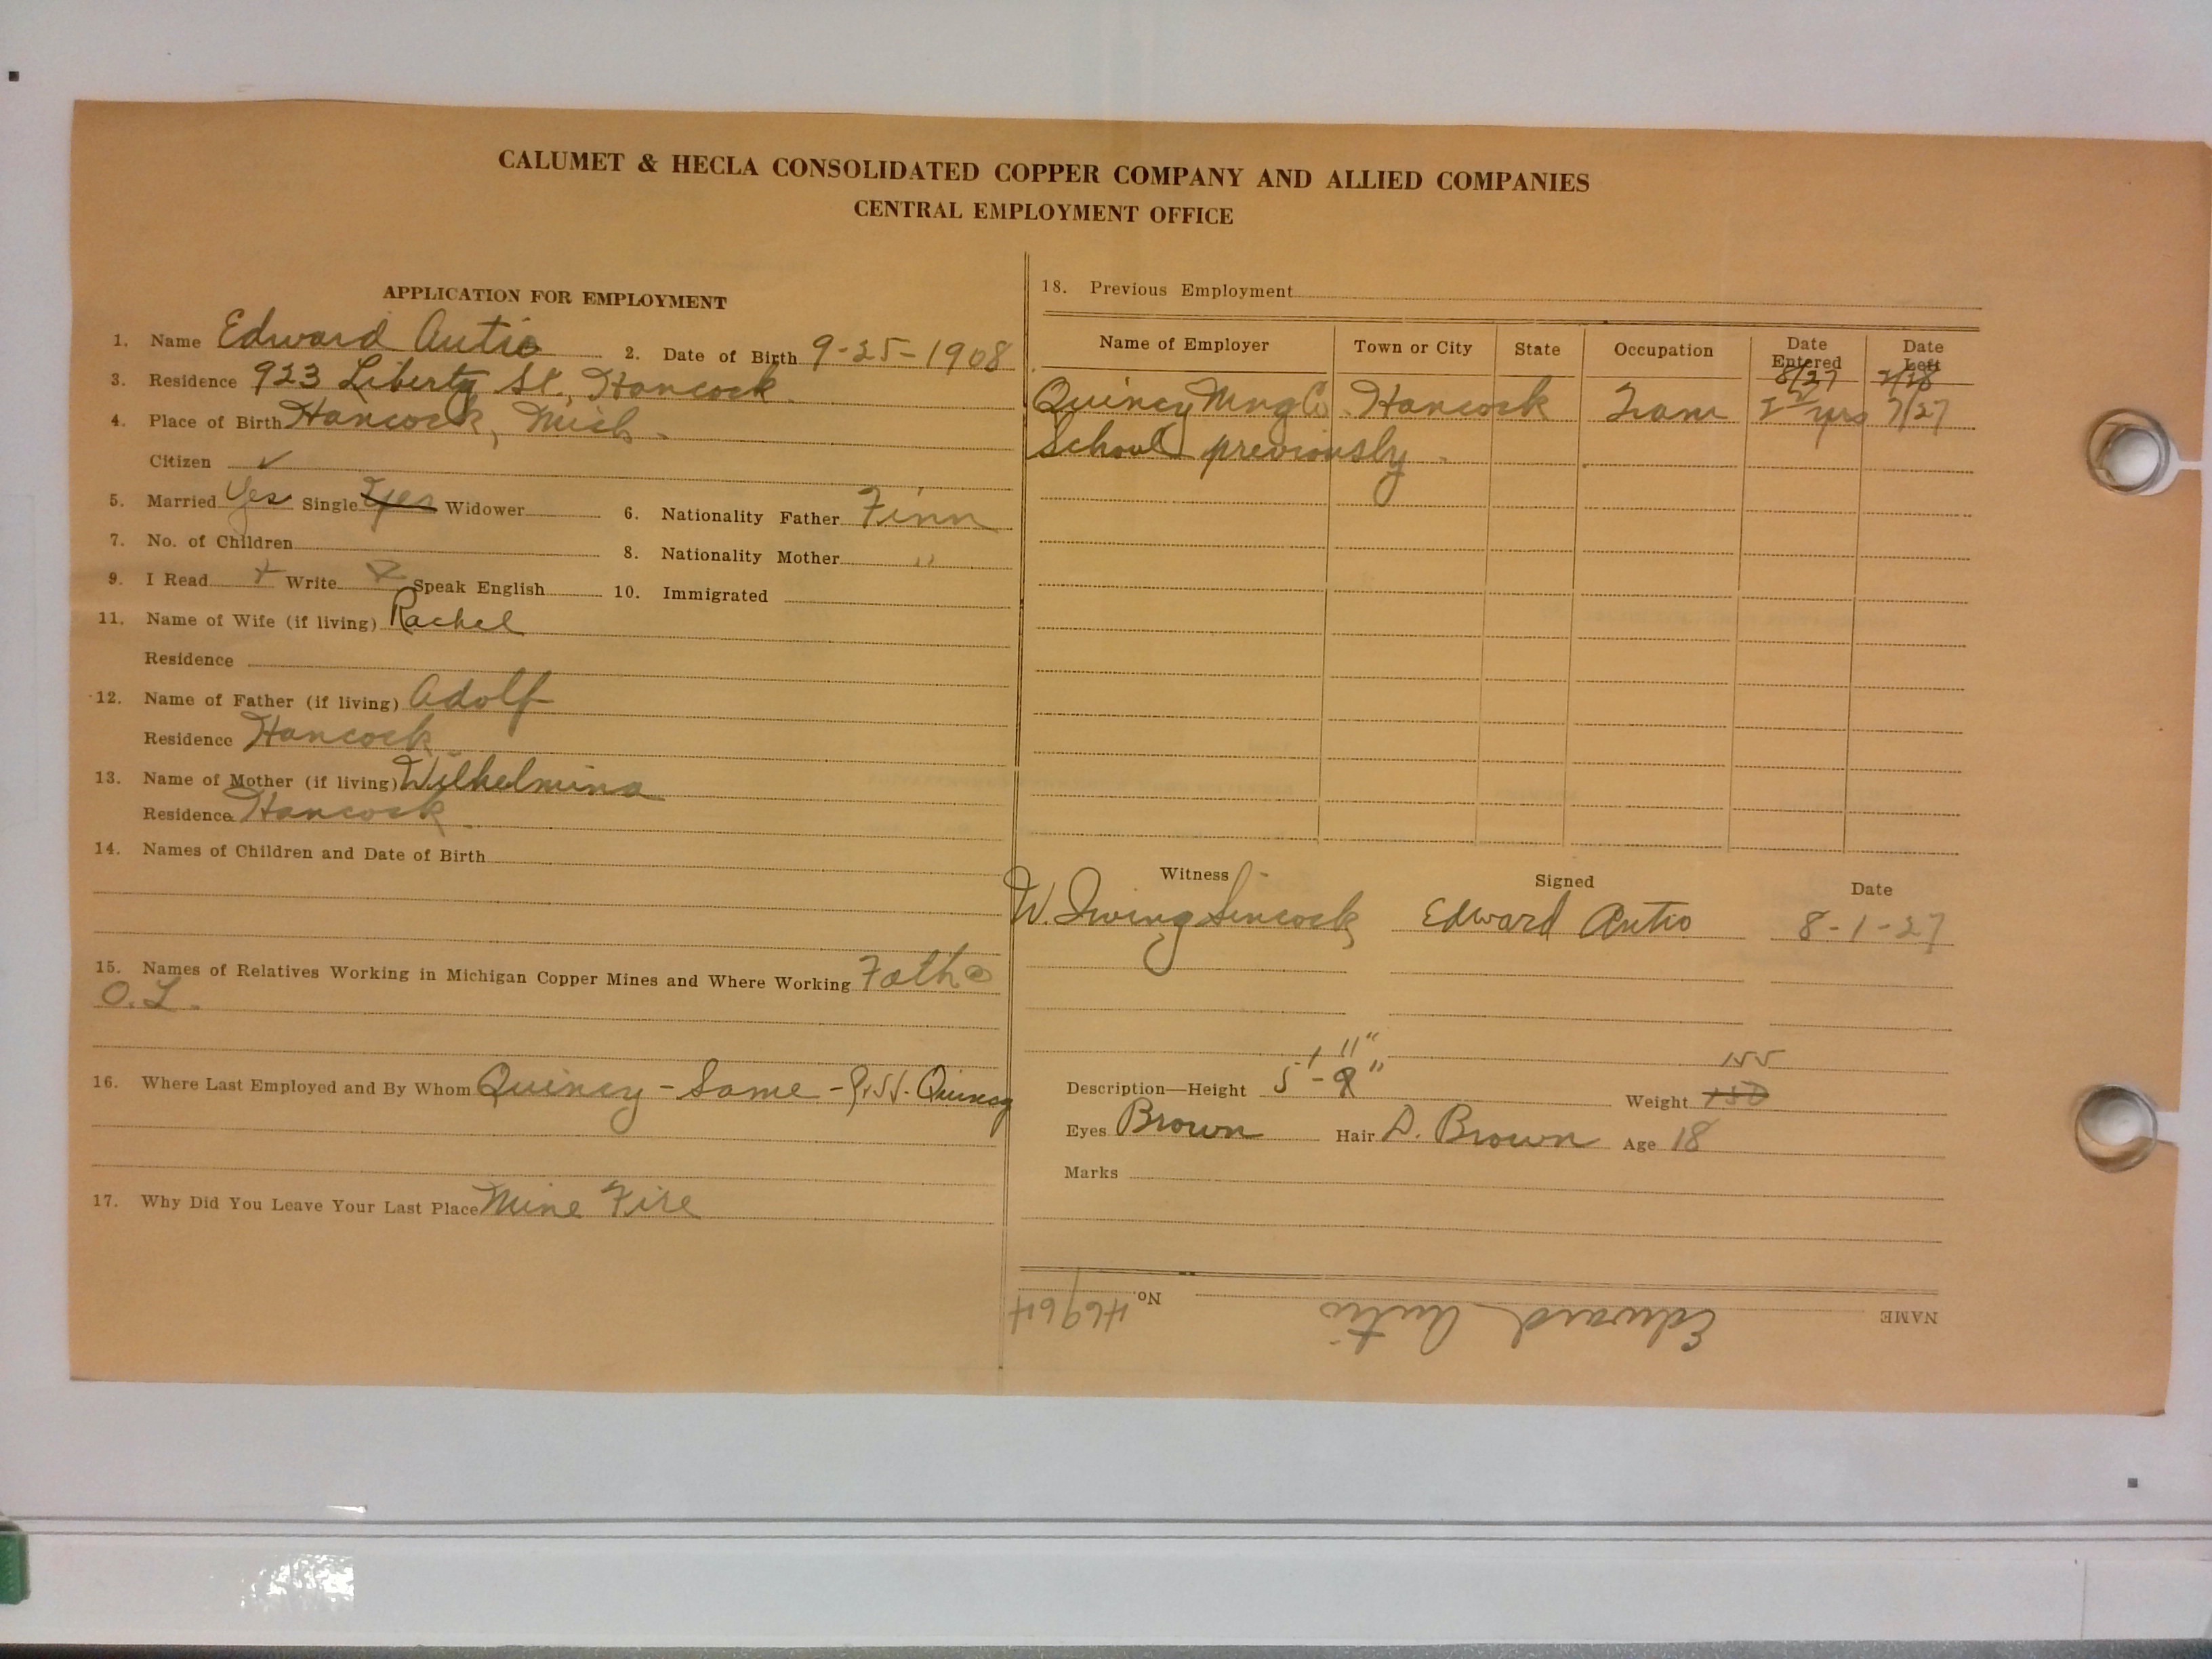 CALUMET & HECLA CONSOLIDATED COPPER COMPANY AND ALLIED COMPANIES
CENTRAL EMPLOYMENT OFFICE
APPLICATION FOR EMPLOYMENT
1. Name Edward Autio 2. Date of Birth 9-25-1908
3. Residence 923 Liberty St., Hancock.
4. Place of Birth Hancock, Mich.
Citizen ✓
5. Married Yes Single Widower 6. Nationality Father Finn
7. No. of Children 8. Nationality Mother "
9. I Read Write Speak English 10. Immigrated
11. Name of Wife (if living) Rachel
Residence
12. Name of Father (if living) Adolf
Residence Hancock
13. Name of Mother (if living) Wilhelmina
Residence Hancock
14. Names of Children and Date of Birth
15. Names of Relatives Working in Michigan Copper Mines and Where Working
O.L.
16. Where Last Employed and By Whom Quincy - Same - Quincy
17. Why Did You Leave Your Last Place Mine Fire
18. Previous Employment
Name of Employer Town or City State Occupation Date Entered Date Left
8/27 2/28
Quincy Mng Co. Hancock Tram yrs 7/27
School previously.
Witness Signed Date
W. Irving Sincock Edward Autio 8-1-27
11"
155
Description—Height 5'-9" Weight 150
Eyes Brown Hair D. Brown Age 18
Marks
NAME Edward Autio No. 46964